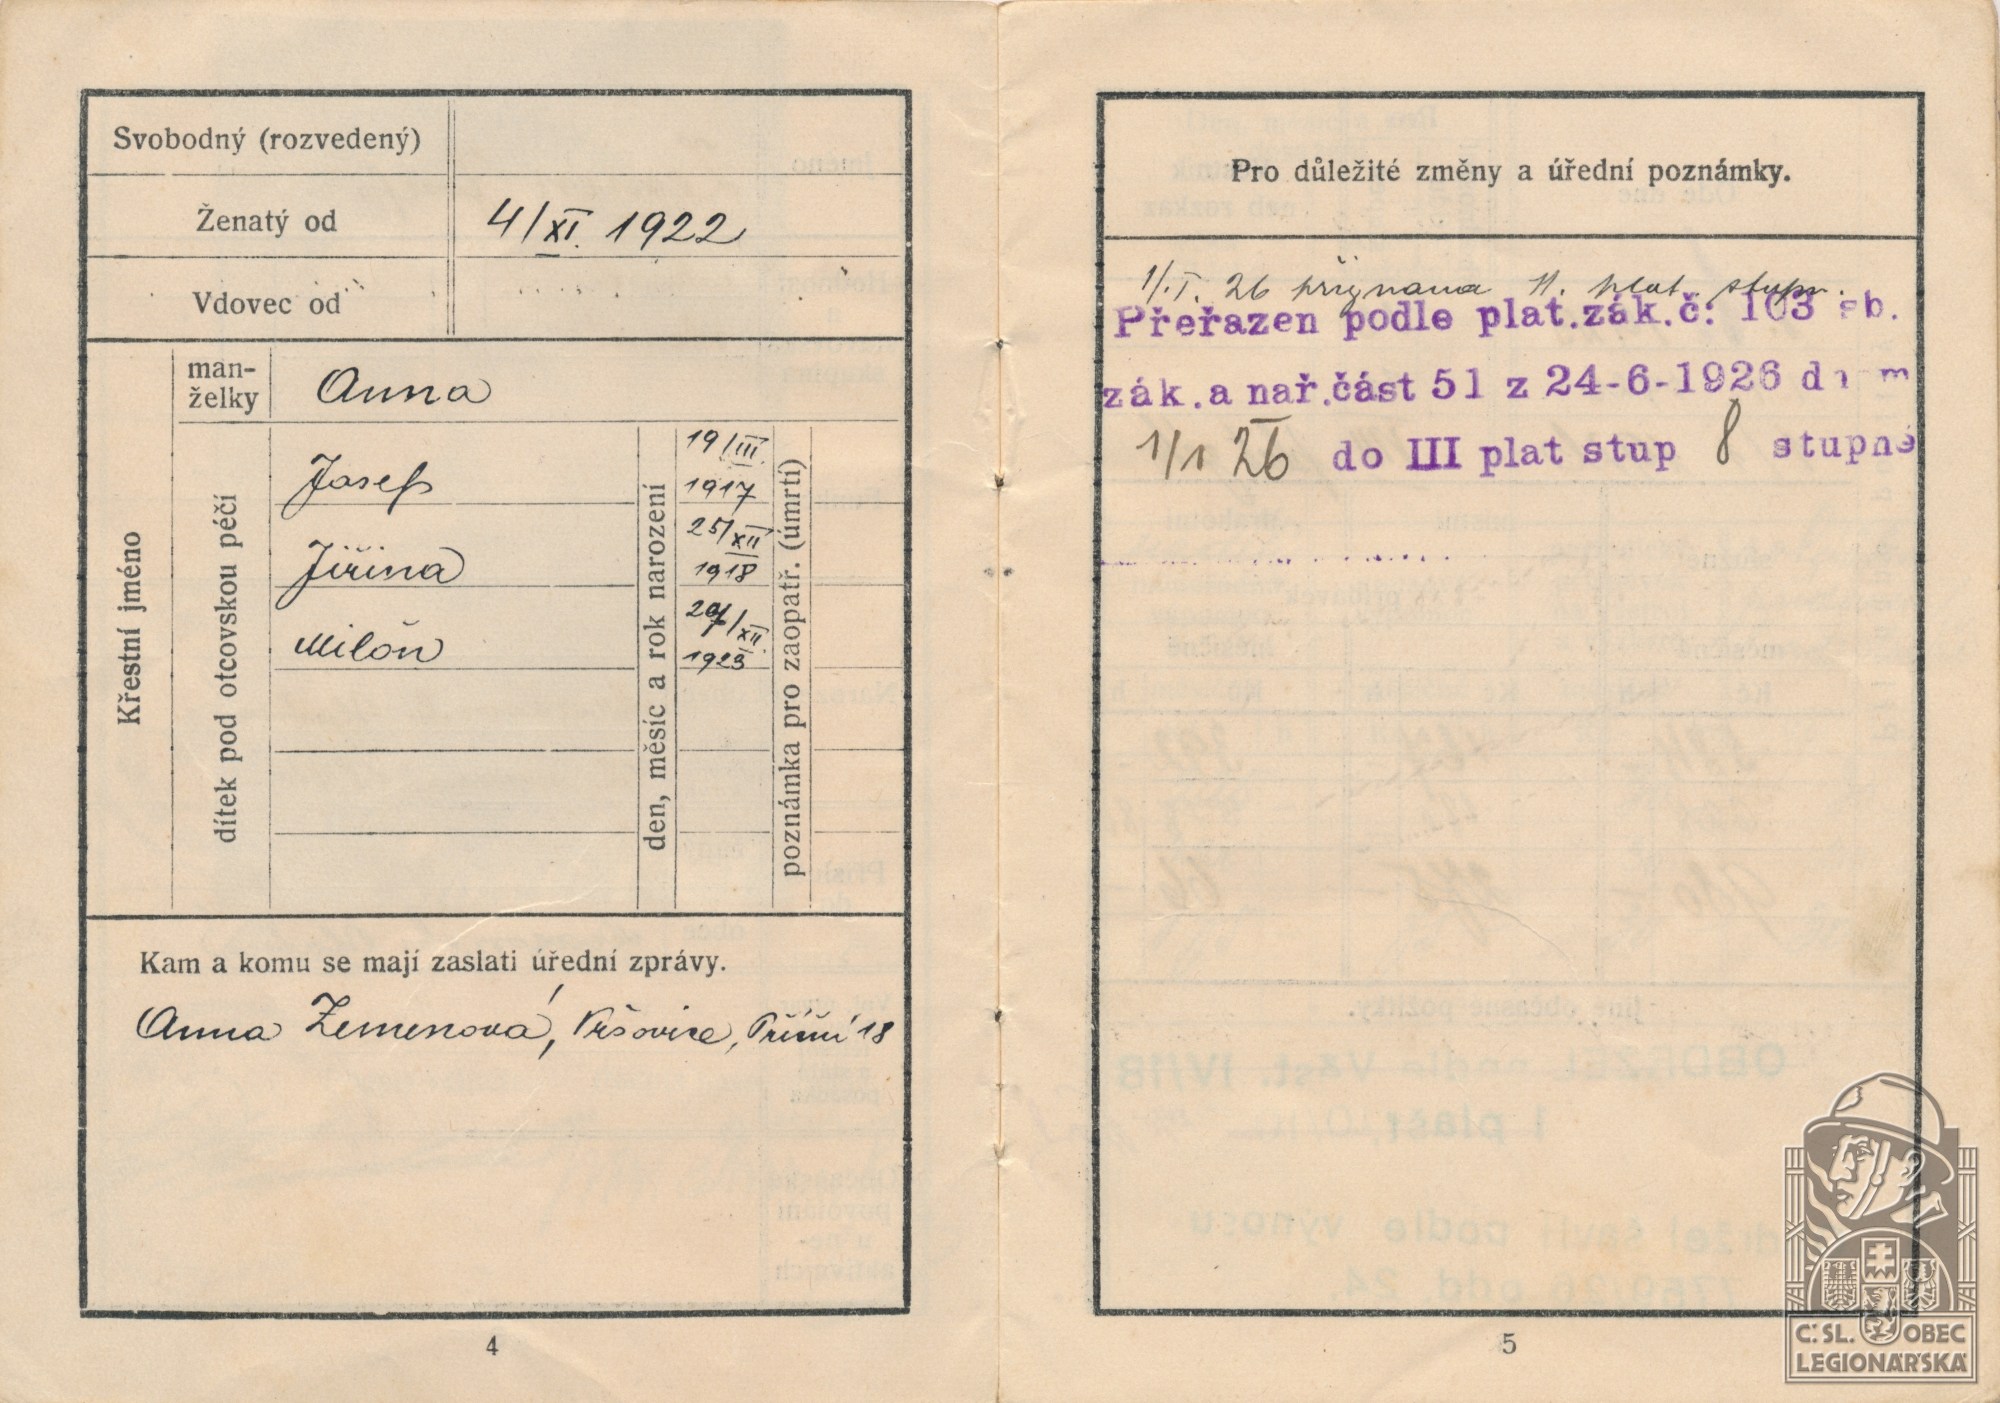 Svobodný (rozvedený)
Ženatý od 4/XI. 1922
Vdovec od
Křestní jméno
man-
želky
Anna
dítek pod otcovskou péčí
den, měsíc a rok narození
poznámka pro zaopatř. (úmrtí)
Josef 19/III. 1917
Jiřina 25/XII 1918
Miloň /XII. 1923
Kam a komu se mají zaslati úřední zprávy.
Anna Zemenová, Vršovice, Říční 18
4
Pro důležité změny a úřední poznámky.
1/I. 26 přiznana 11. plat. stupn.
Přeřazen podle plat.zák.č: 103 sb.
zák.a nař.část 51 z 24-6-1926 dnem
1/1 26 do III plat stup 8 stupně
5
Č.SL. OBEC
LEGIONÁŘSKÁ